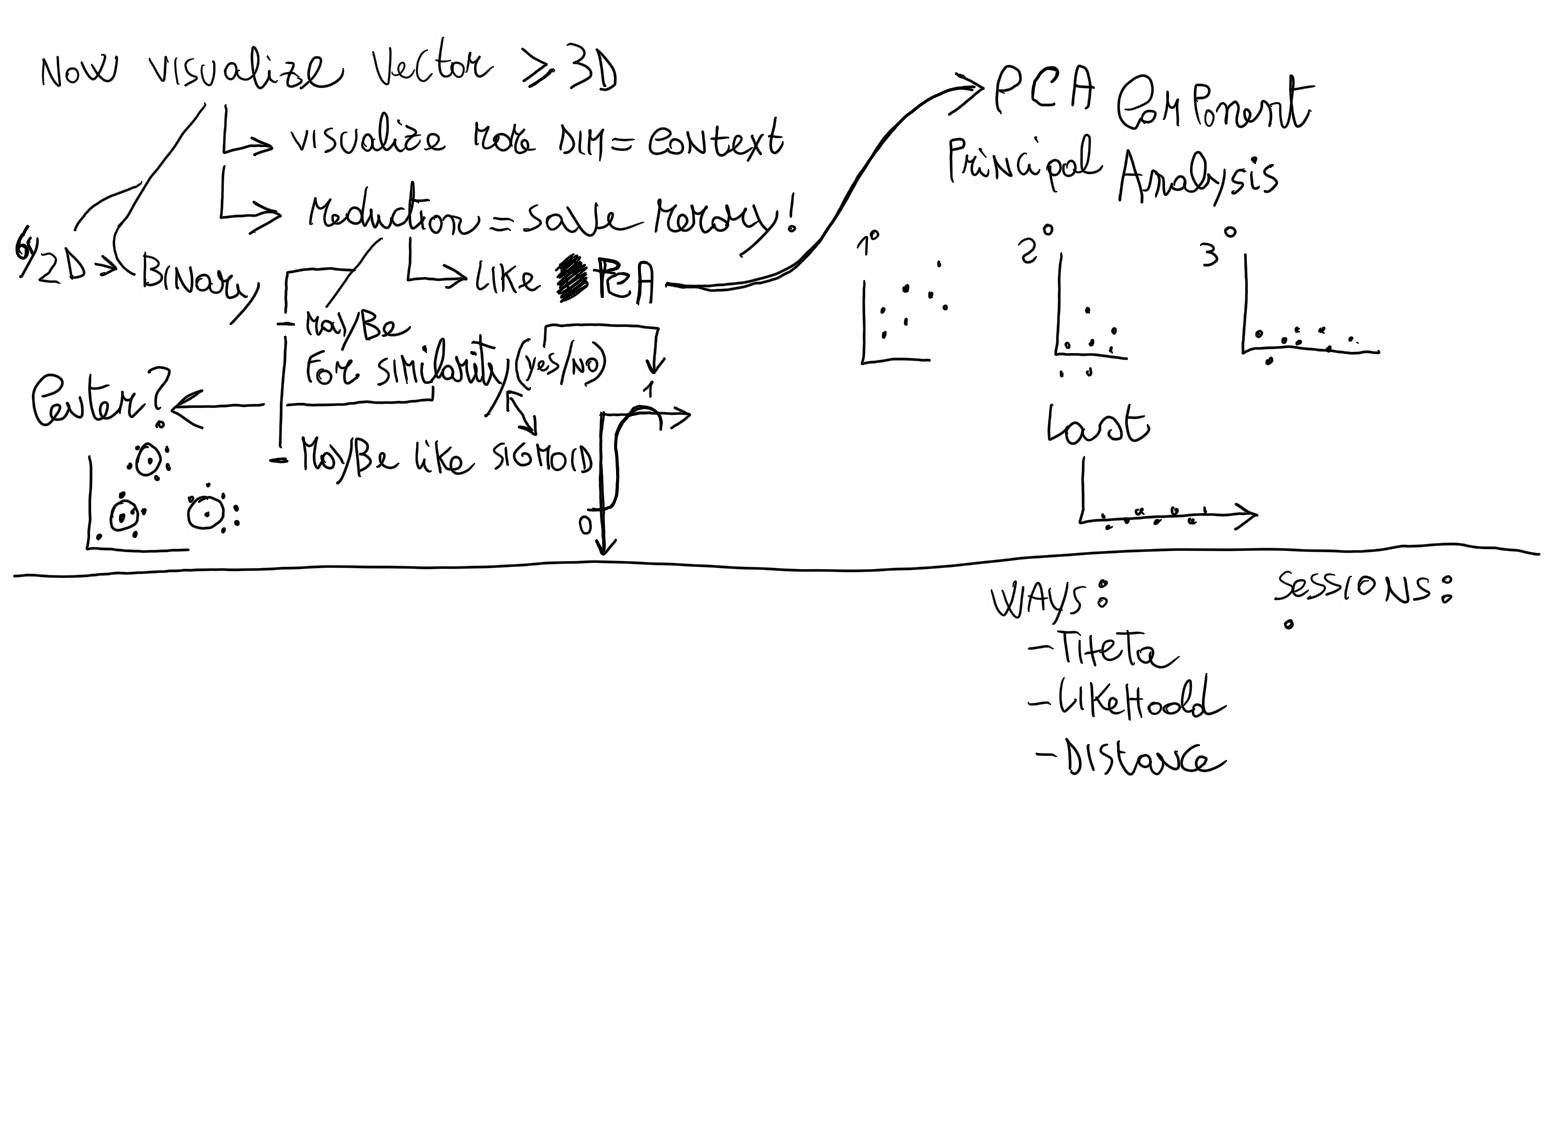 NOW VISUALIZE Vector ≥ 3D
VISUALIZE MORE DIM = CONTEXT
Reduction = Save Memory!
2D → BINARY
LIKE PCA
- MAY/Be
FOR SIMILARITY (yes/NO)
1
Center?
- MAY/Be like SIGMOID
0
PCA Component
Principal Analysis
1°
2°
3°
Last
WAYS:
- THeTa
- LIKeHoold
- DIStance
SeSSIONS: